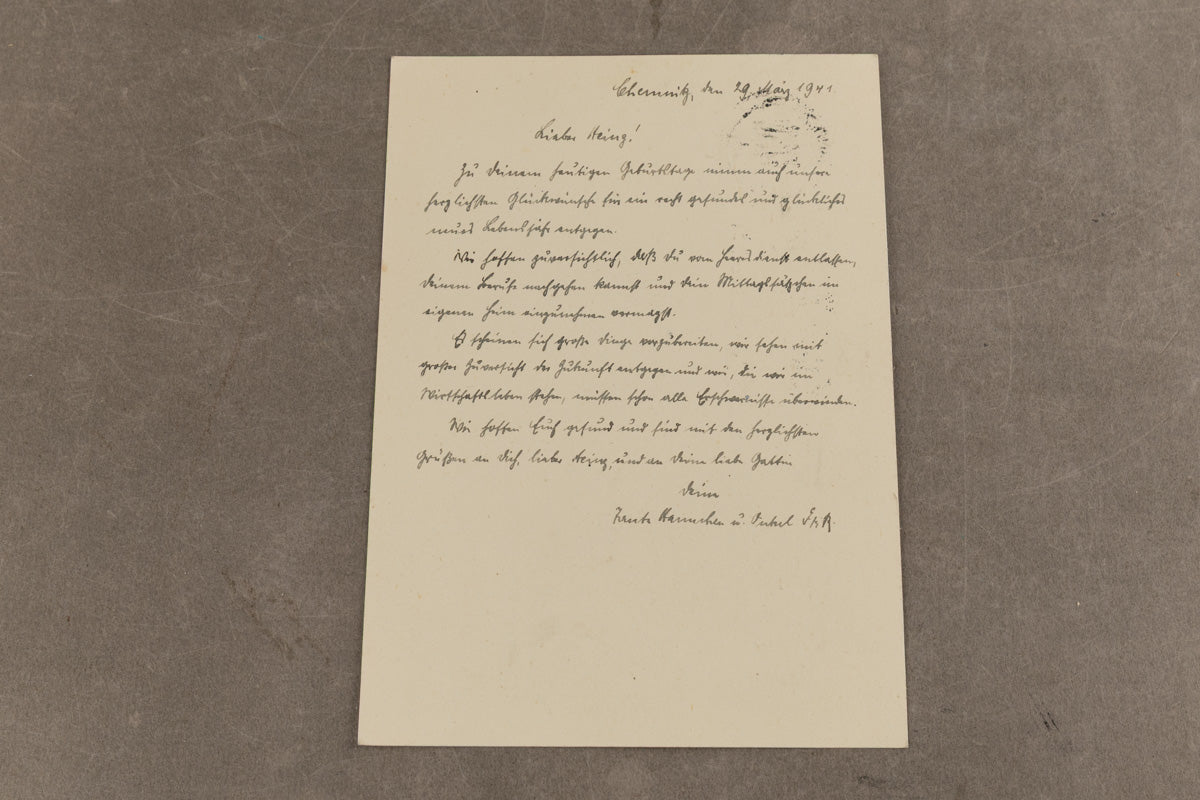 Chemnitz, den 29. März 1941
Lieber Heinz!
Zu Deinem heutigen Geburtstage nimm auch unsere
herzlichsten Glückwünsche für ein recht gesundes und glückliches
neues Lebensjahr entgegen.
Wir hoffen zuversichtlich, daß Du vom Heeresdienst entlassen,
Deinem Berufe nachgehen kannst und Dein Mittagsschläfchen im
eigenen Heim einzunehmen vermagst.
Es scheinen sich große Dinge vorzubereiten, wir sehen mit
großer Zuversicht der Zukunft entgegen und wir, die wir im
Wirtschaftsleben stehen, müssen schon alle Erschwernisse überwinden.
Wir hoffen Euch gesund und sind mit den herzlichsten
Grüßen an Dich, lieber Heinz, und an Deine liebe Gattin
Deine
Tante Hannchen u. Onkel